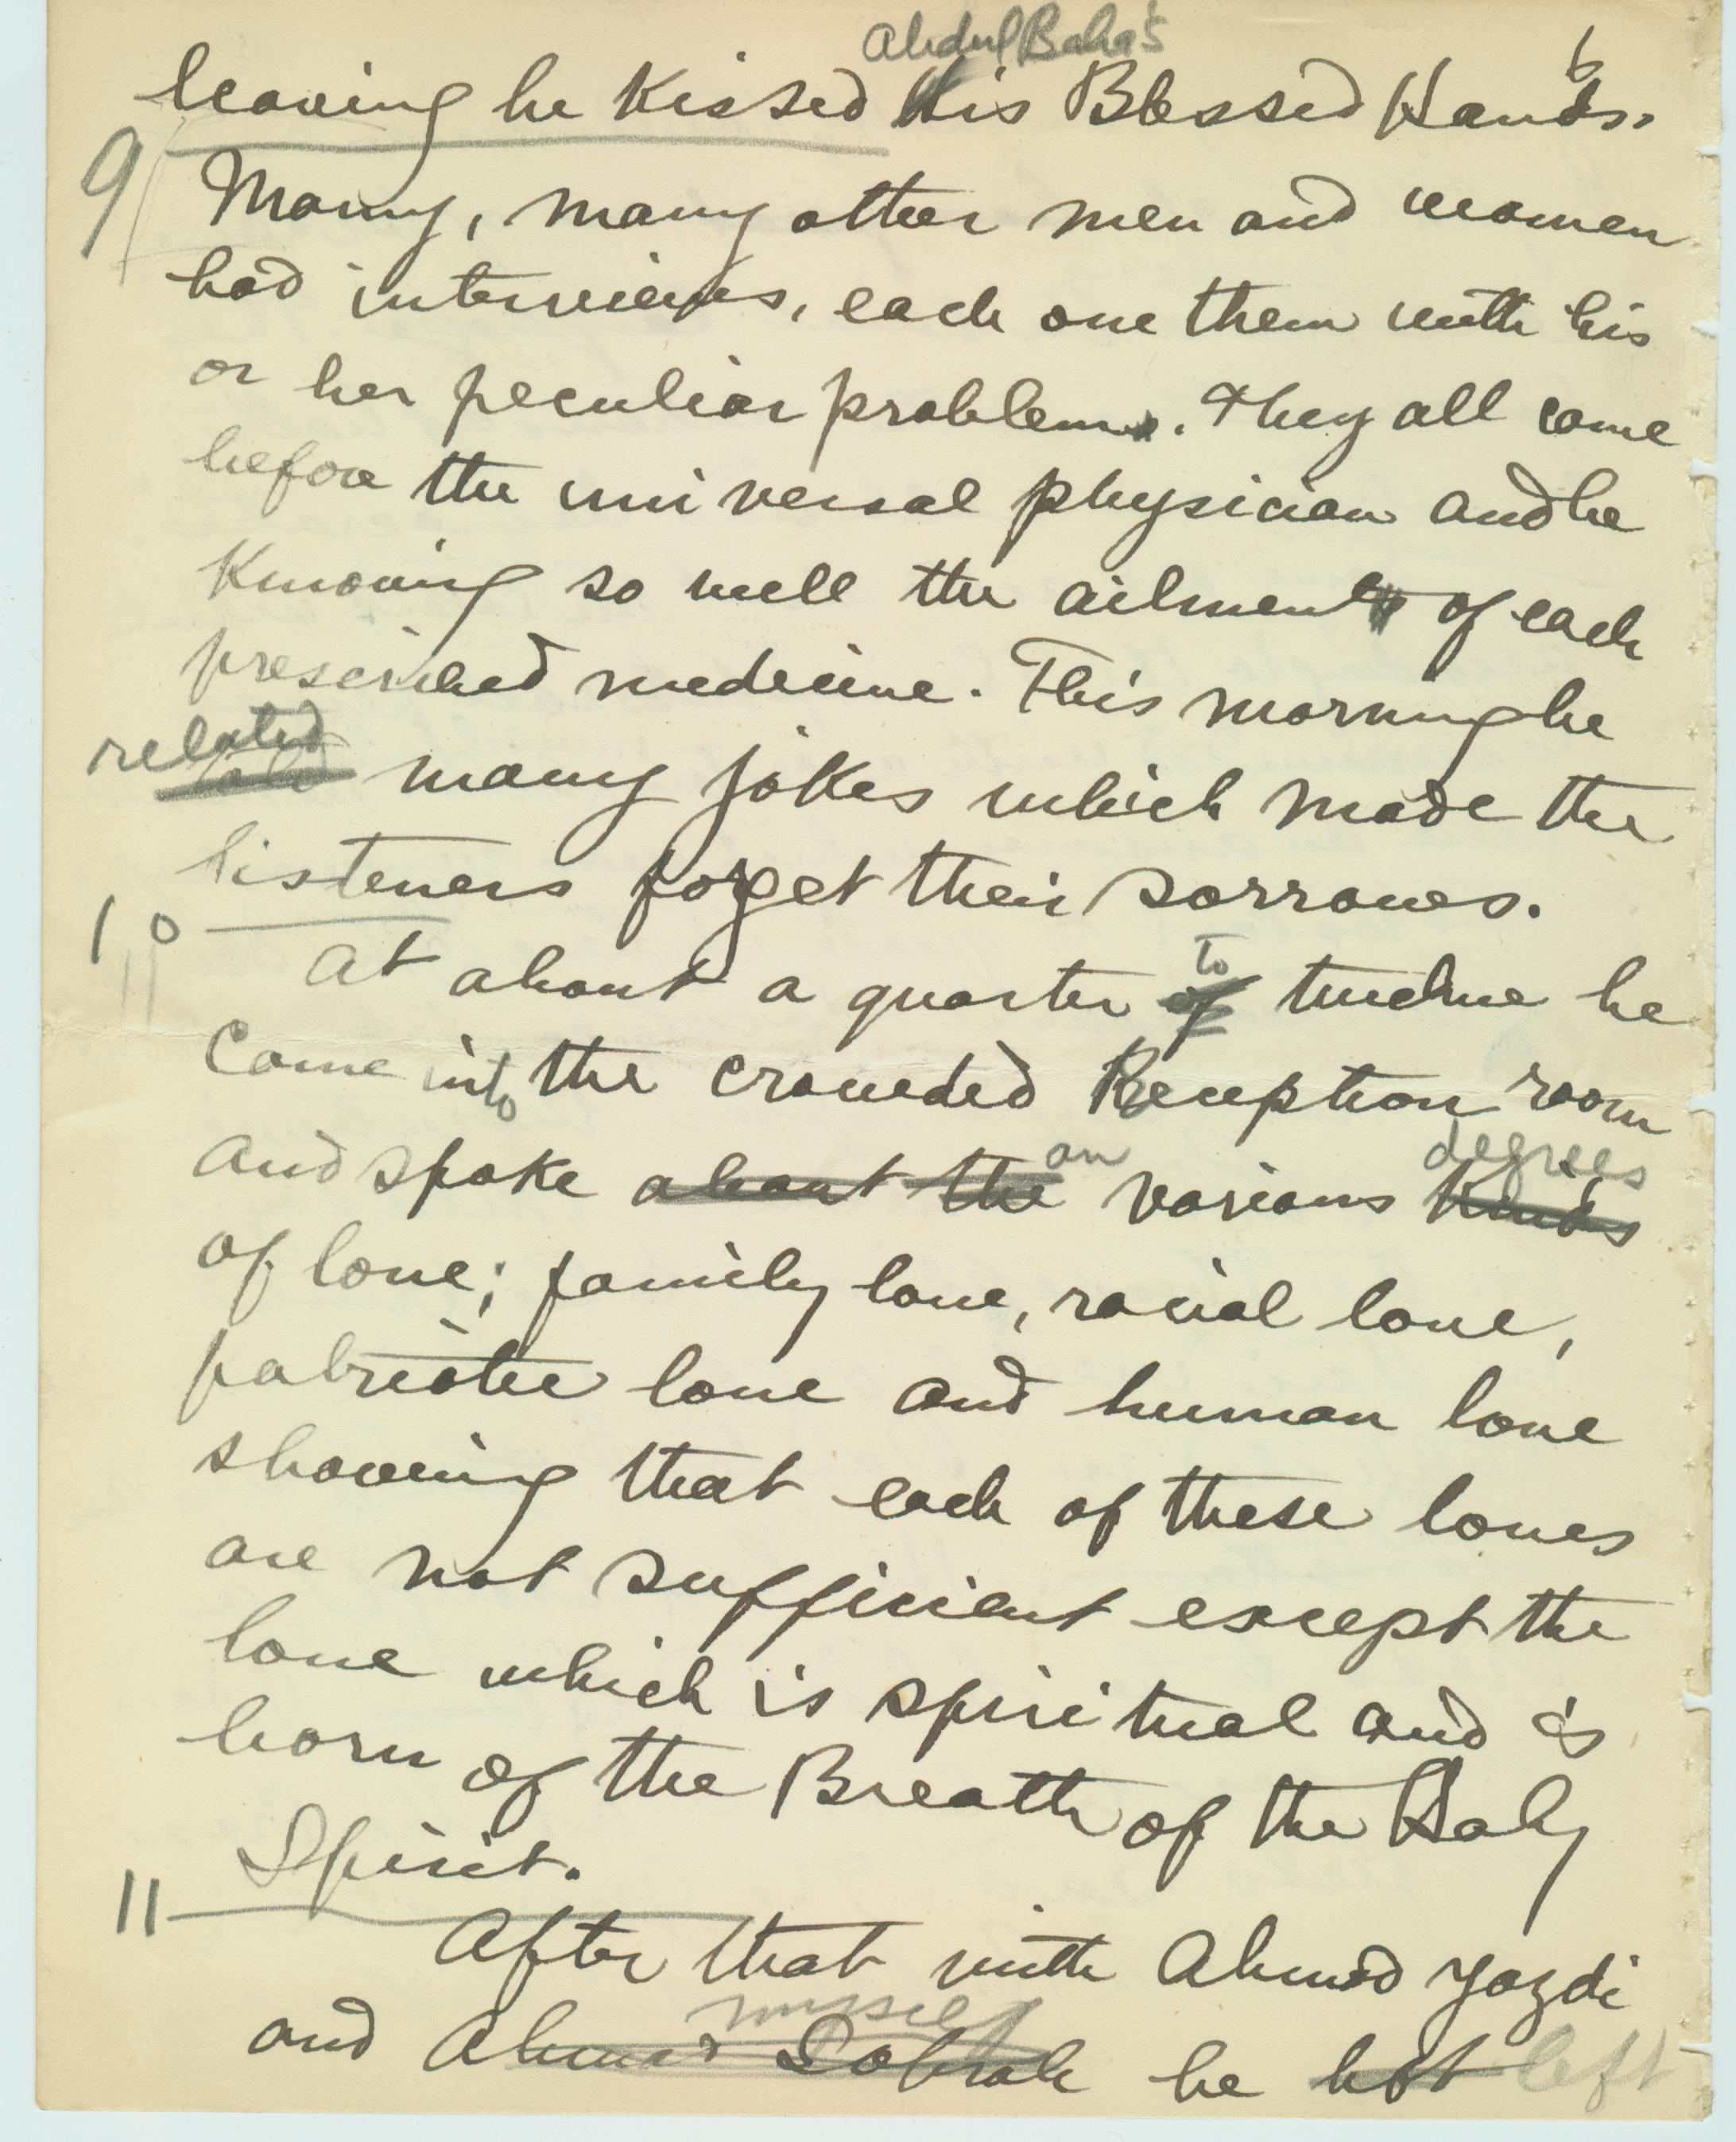 Abdul Baha's
6
leaving he kissed His Blessed Hands.
9 Many, many other men and women
had interviews, each one them with his
or her peculiar problem. They all came
before the universal physician and he
knowing so well the ailment of each
prescribed medicine. This morning he
related
many jokes which made the
listeners forget their sorrows.
10
to
At about a quarter of twelve he
came into the crowded Reception room
on degrees
and spoke about the various kinds
of love; family love, racial love,
patriotic love and human love
showing that each of these loves
are not sufficient except the
love which is spiritual and is
born of the Breath of the Holy
Spirit.
11
After that with Ahmad Yazdi
myself
and Ahmad Sohrab he left